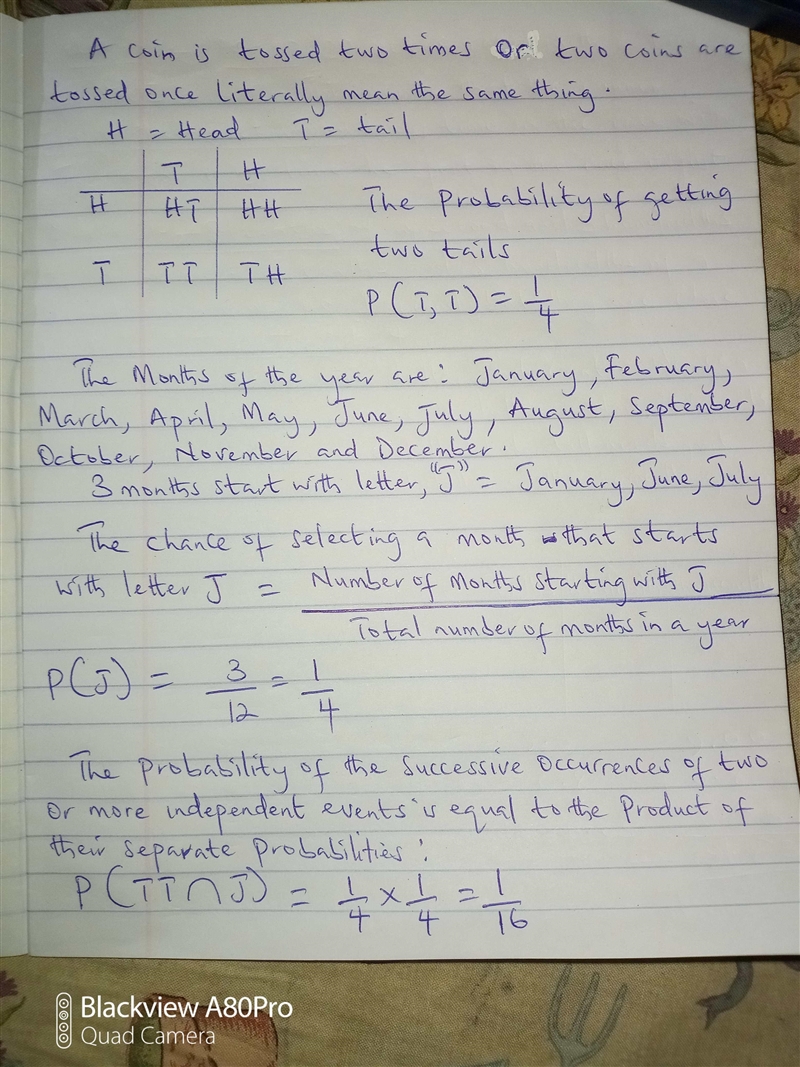 A coin is tossed two times Or two coins are
tossed once literally mean the same thing.
H = Head T = tail
T H
H HT HH
T TT TH
The Probability of getting
two tails
P(T,T) = 1/4
The Months of the year are: January, February,
March, April, May, June, July, August, September,
October, November and December.
3 months start with letter, "J" = January, June, July
The chance of selecting a month that starts
with letter J = Number of Months starting with J
Total number of months in a year
P(J) = 3/12 = 1/4
The Probability of the Successive Occurrences of two
Or more independent events is equal to the Product of
their Separate Probabilities:
P(TT∩J) = 1/4 × 1/4 = 1/16
Blackview A80Pro
Quad Camera